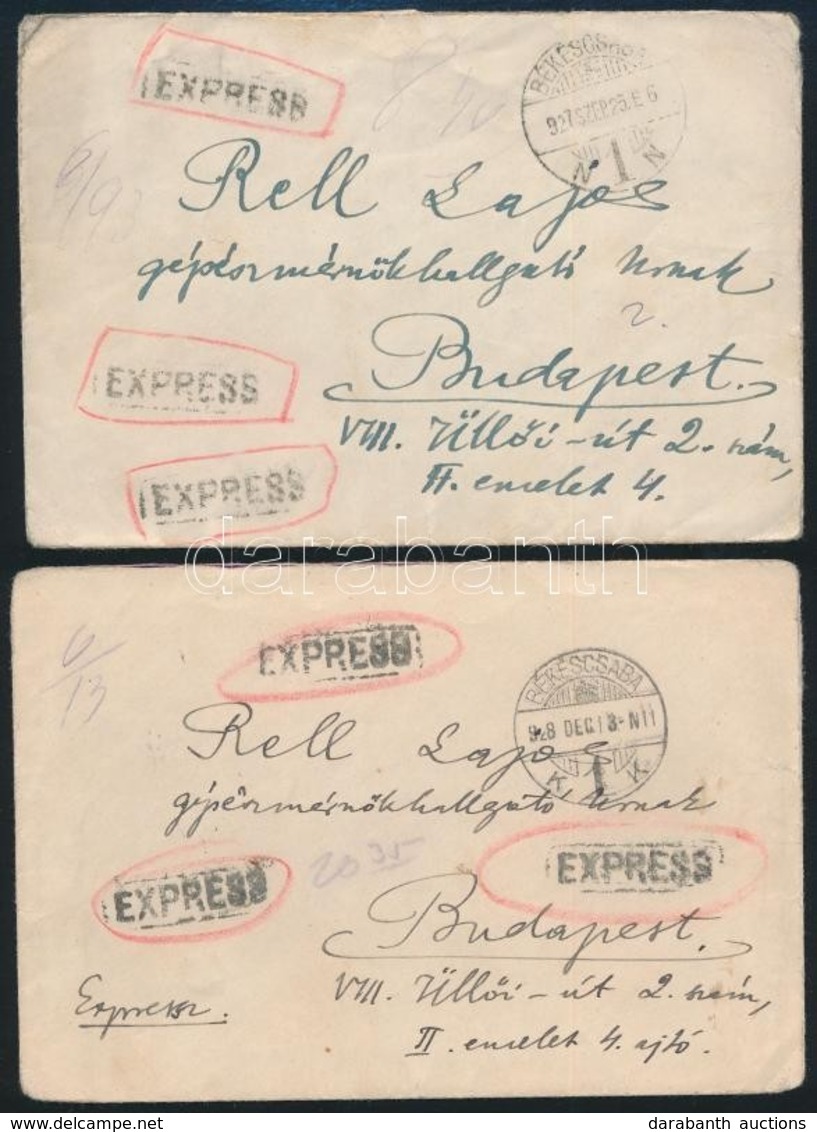 EXPRESS
BÉKÉSCSABA
927 SZEP. 25. E 6
N 1 N
6/93
Rell Lajos
gépészmérnökhallgató Urnak
2.
Budapest.
EXPRESS
VIII. Üllői-út 2. szám,
EXPRESS
II. emelet 4.
darabanth
6/13
EXPRESS
BÉKÉSCSABA
928 DEC. 13. N 11
K 1 K
Rell Lajos
gépészmérnökhallgató Urnak
EXPRESS
20 35
EXPRESS
Budapest.
VIII. Üllői-út 2. szám,
Expressz.
II. emelet 4. ajtó.
darabanth auctions